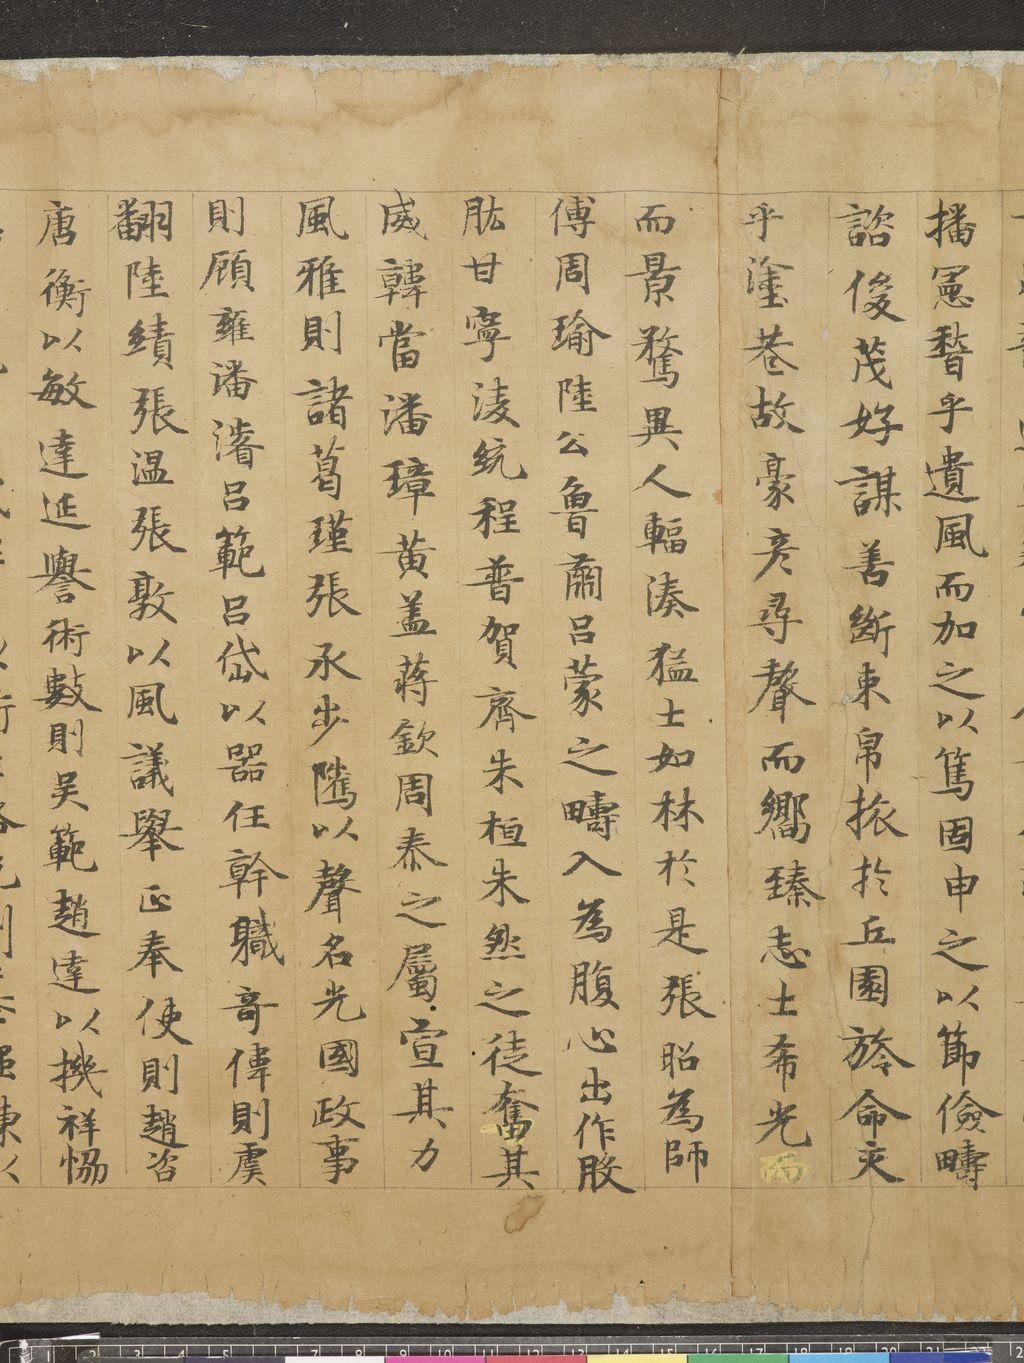 播憲稽乎遺風而加之以篤固申之以節儉疇
諮俊茂好謀善斷束帛旅於丘園旌命交
乎塗巷故豪彦尋聲而嚮臻志士希光而
而景騖異人輻湊猛士如林於是張昭為師
傅周瑜陸公魯肅呂蒙之疇入為腹心出作股
肱甘寧淩統程普賀齊朱桓朱然之徒奮其
威韓當潘璋黃蓋蔣欽周泰之屬宣其力
風雅則諸葛瑾張承步隲以聲名光國政事
則顧雍潘濬呂範呂岱以器任幹職奇偉則虞
翻陸績張温張敦以風議舉正奉使則趙咨
唐衡以敏達延譽術數則吴範趙達以機祥協